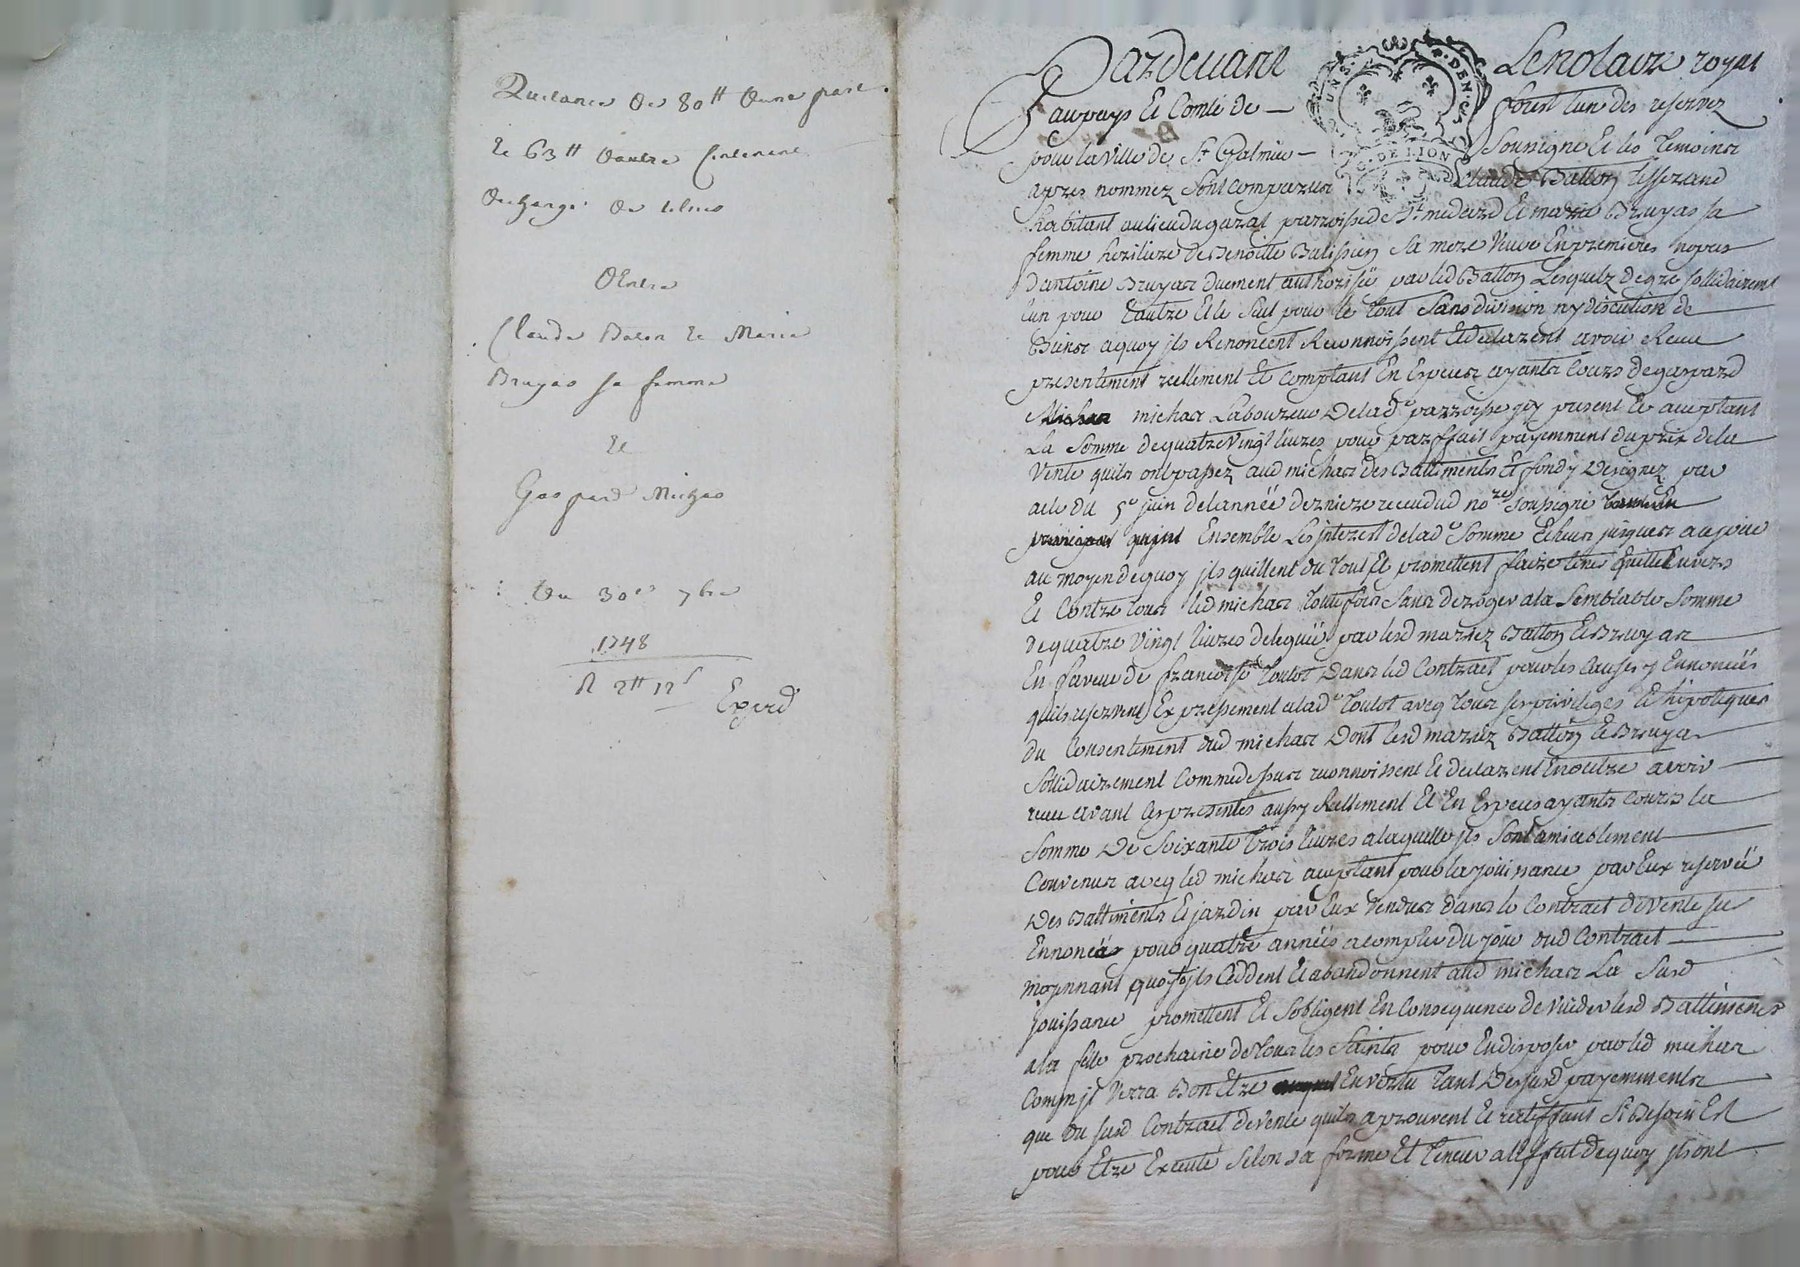 Quitance de 80tt dune part
et 63tt dautre Contenant
decharge de
Entre
Claude Baton et Marie
Bruyas sa femme
et
Gaspard Michas
Du 30e 7bre
1748
R 2tt 12s
Exped
Pardevant Le notaire royal
au pays et Comté de forest lun des reservez
pour la ville de St Galmier Soussigné et les temoins
apres nommez sont comparus Claude Batton tisserand
habitant au lieu du gazat parroisse de St medard et marie Bruyas sa
femme heritiere de Benoitte sa mere veuve en premieres nopces
dantoine Bruyas duement authorisée par led Batton Lesquelz de gre sollidairement
lun pour lautre et le seul pour le tout sans division ny discution de
Biens aquoy ils Renoncent Reconnoissent et declarent avoir Receu
presentement reellement et comptant en Especes ayants cours de gaspard
michas Laboureur de lad parroisse icy present et acceptant
La somme de quatre vingt livres pour parffait payemment du prix de la
vente quils ont passez aud michas des Battiments et fondz designez par
acte du 5e juin de lannéé derniere receu dud nore soussigné
Ensemble Les interest de lad somme Echeus jusques a ce jour
au moyen de quoy ils quittent du tout et promettent faire tenir quitte Envers
et contre tous led michas touttefois sans deroger a la semblable somme
de quatre vingt livres deleguéé par lesd mariez Batton et Bruyas
En faveur de francoise Toulot dans led Contract pour les causes y Ennoncéés
quils reservent Expressement a lad Toulot aveq tous ses privileges et hipoteques
du consentement dud michas dont lesd mariez Batton et Bruyas
sollidairement comme dessus reconnoissent et declarent en outre avoir
receu avant ces presentes aussy Reellement et En Especes ayants cours la
somme de soixante trois livres a laquelle ils sont amiablement
convenus aveq led michas acceptant pour la jouissance par Eux reservéé
des Battiments et jardin par Eux vendus dans le contract de vente sus
Ennoncé pour quatre annéés a compter du jour dud Contract
moyennant quoy ils Ceddent et abandonnent aud michas La susd
jouissance promettent et sobligent En consequence de vuider lesd Battimens
a la fette prochaine de Tous les Saints pour En disposer par led michas
comm il verra Bon Etre En vertu tant des susd payemments
que du susd Contract de vente quils approuvent et rateffient si Besoin Est
pour Etre Executé selon sa forme et teneur a leffet de quoy ils ont